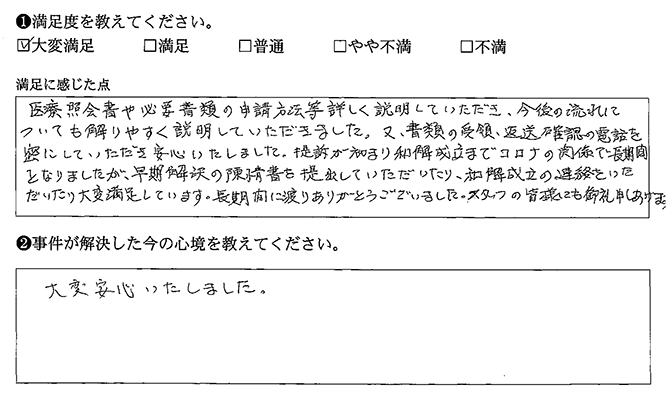 ❶満足度を教えてください。
☑大変満足 □満足 □普通 □やや不満 □不満
満足に感じた点
医療照会書や必要書類の申請方法等詳しく説明していただき、今後の流れに
ついても解りやすく説明していただきました。又、書類の受領、返送確認の電話を
密にしていただき安心いたしました。提訴が始まり和解成立までコロナの関係で長期間
となりましたが、早期解決の陳情書を提出していただいたり、和解成立の連絡をいた
だいたり大変満足しています。長期間に渡りありがとうございました。スタッフの皆様にも御礼申しあげます
❷事件が解決した今の心境を教えてください。
大変安心いたしました。